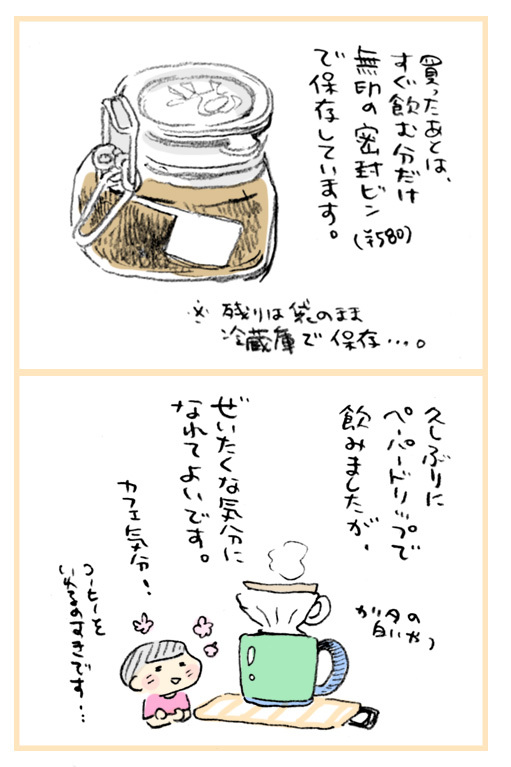 買ったあとは、
すぐ飲む分だけ
無印の密封ビン
(¥580)
で保存しています。
※ 残りは袋のまま
冷蔵庫で保存…。
久しぶりに
ペーパードリップで
飲みましたが、
ぜいたくな気分に
なれてよいです。
カフェ気分!
コーヒーを
いれるのすきです…